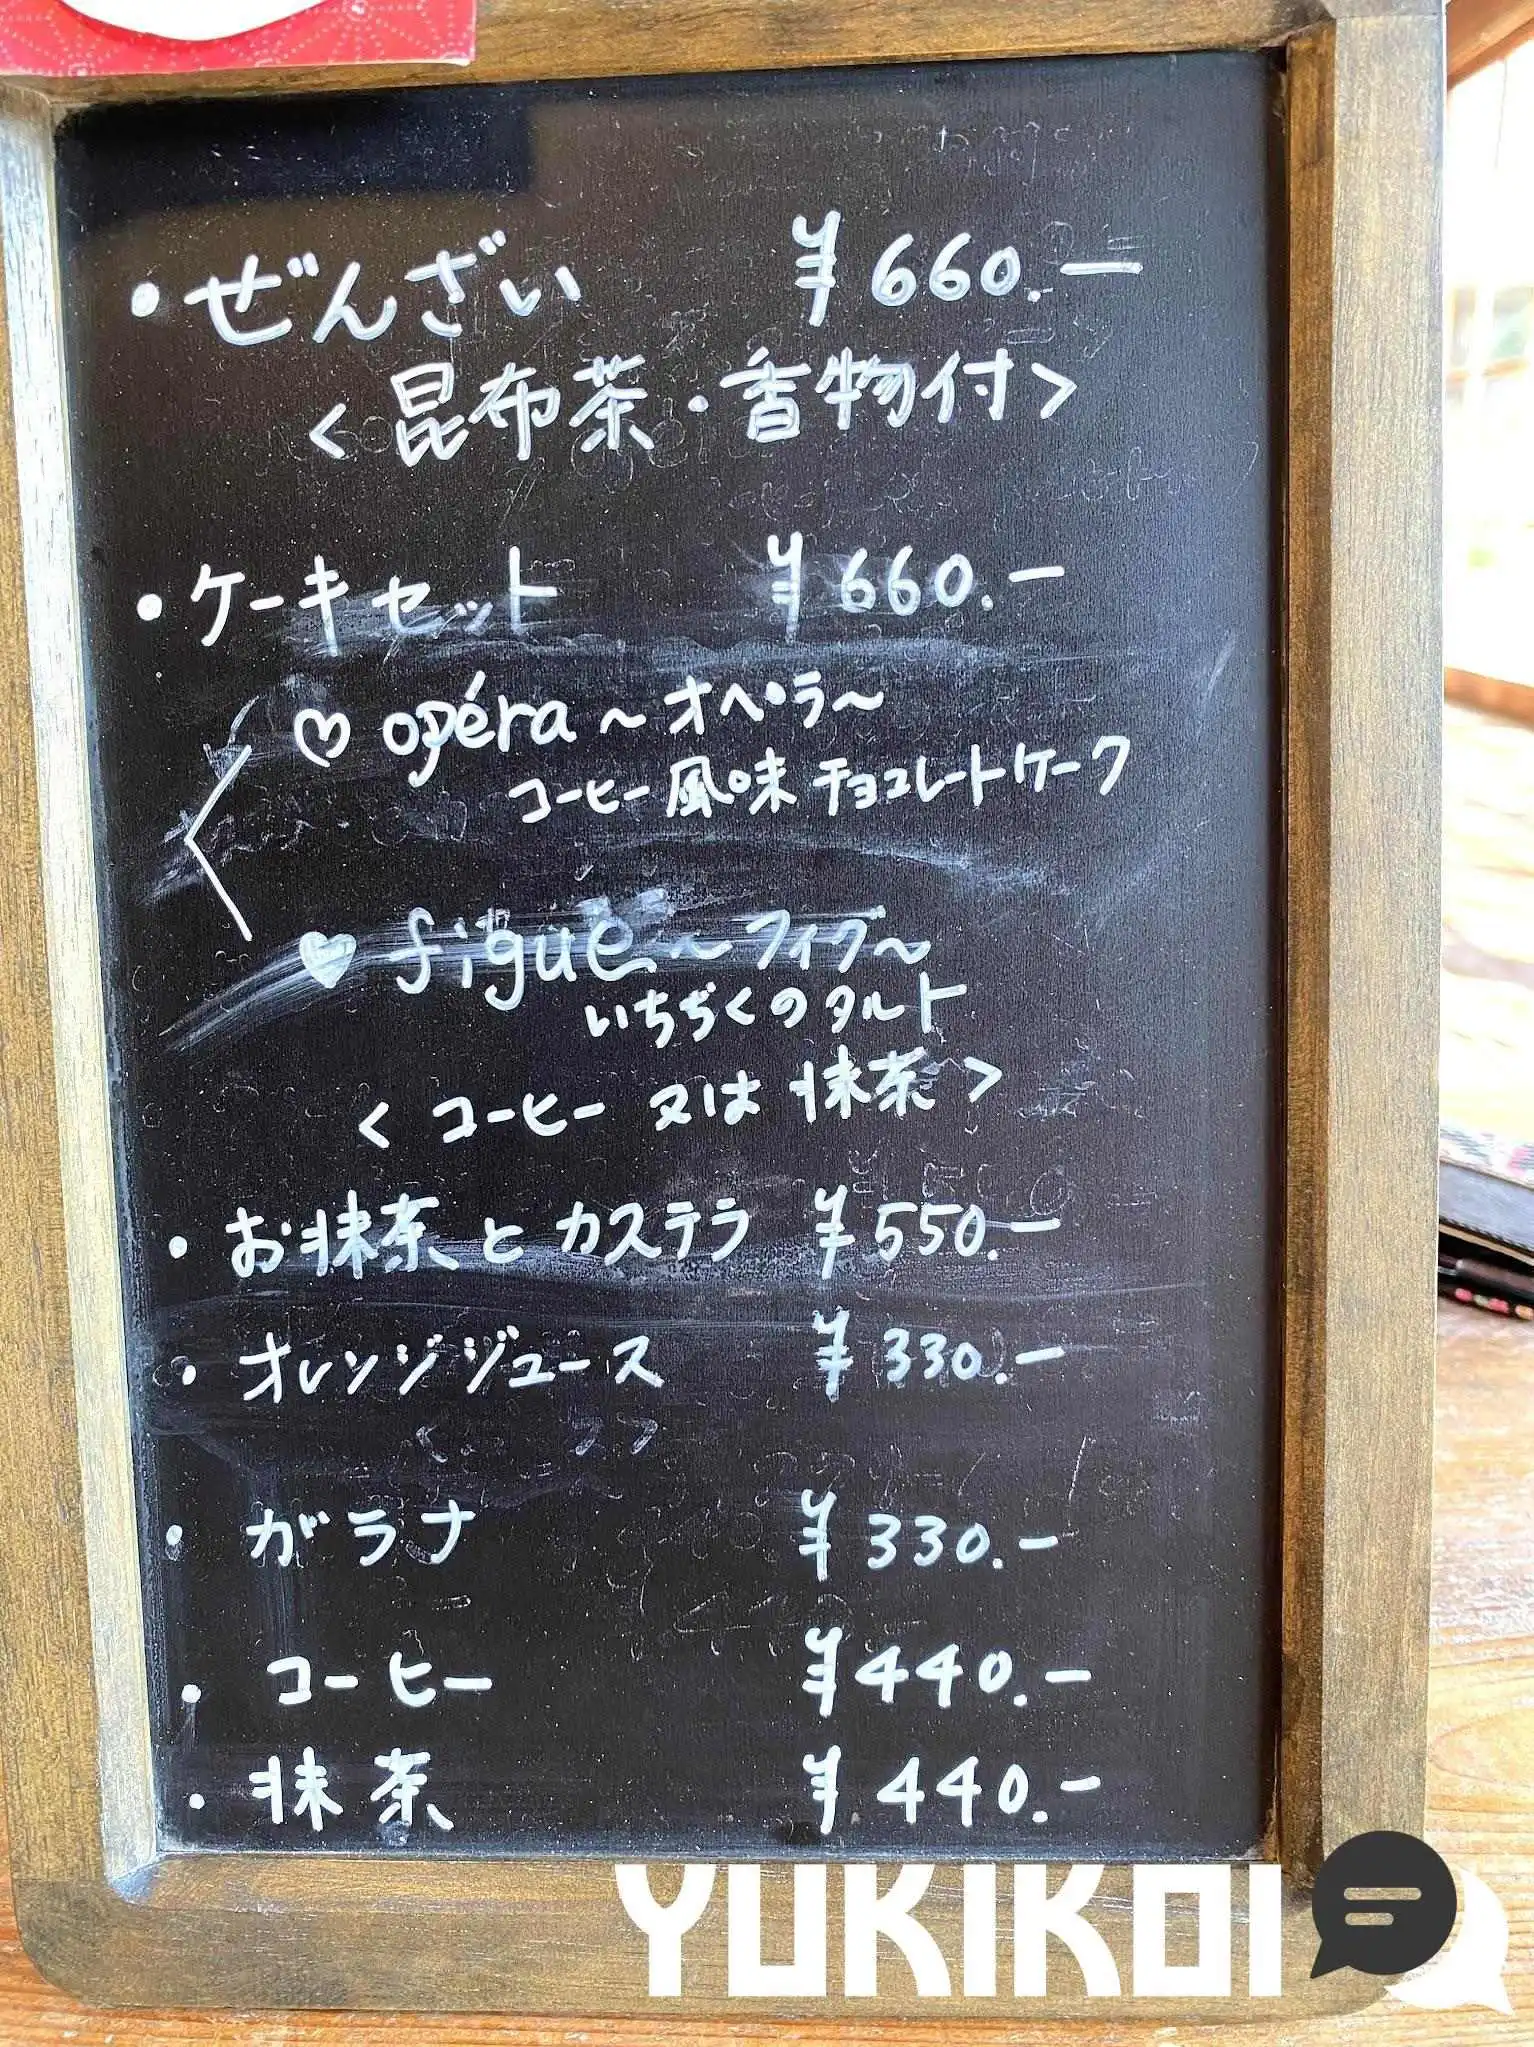 ・ぜんざい ¥660.ー
<昆布茶・香物付>
・ケーキセット ¥660.ー
♡ opéra ～オペラ～
コーヒー風味チョコレートケーク
♥ figue ～フィグ～
いちぢくのタルト
<コーヒー 又は 抹茶>
・お抹茶とカステラ ¥550.ー
・オレンジジュース ¥330.ー
・ガラナ ¥330.ー
・コーヒー ¥440.ー
・抹茶 ¥440.ー
YUKIKOI